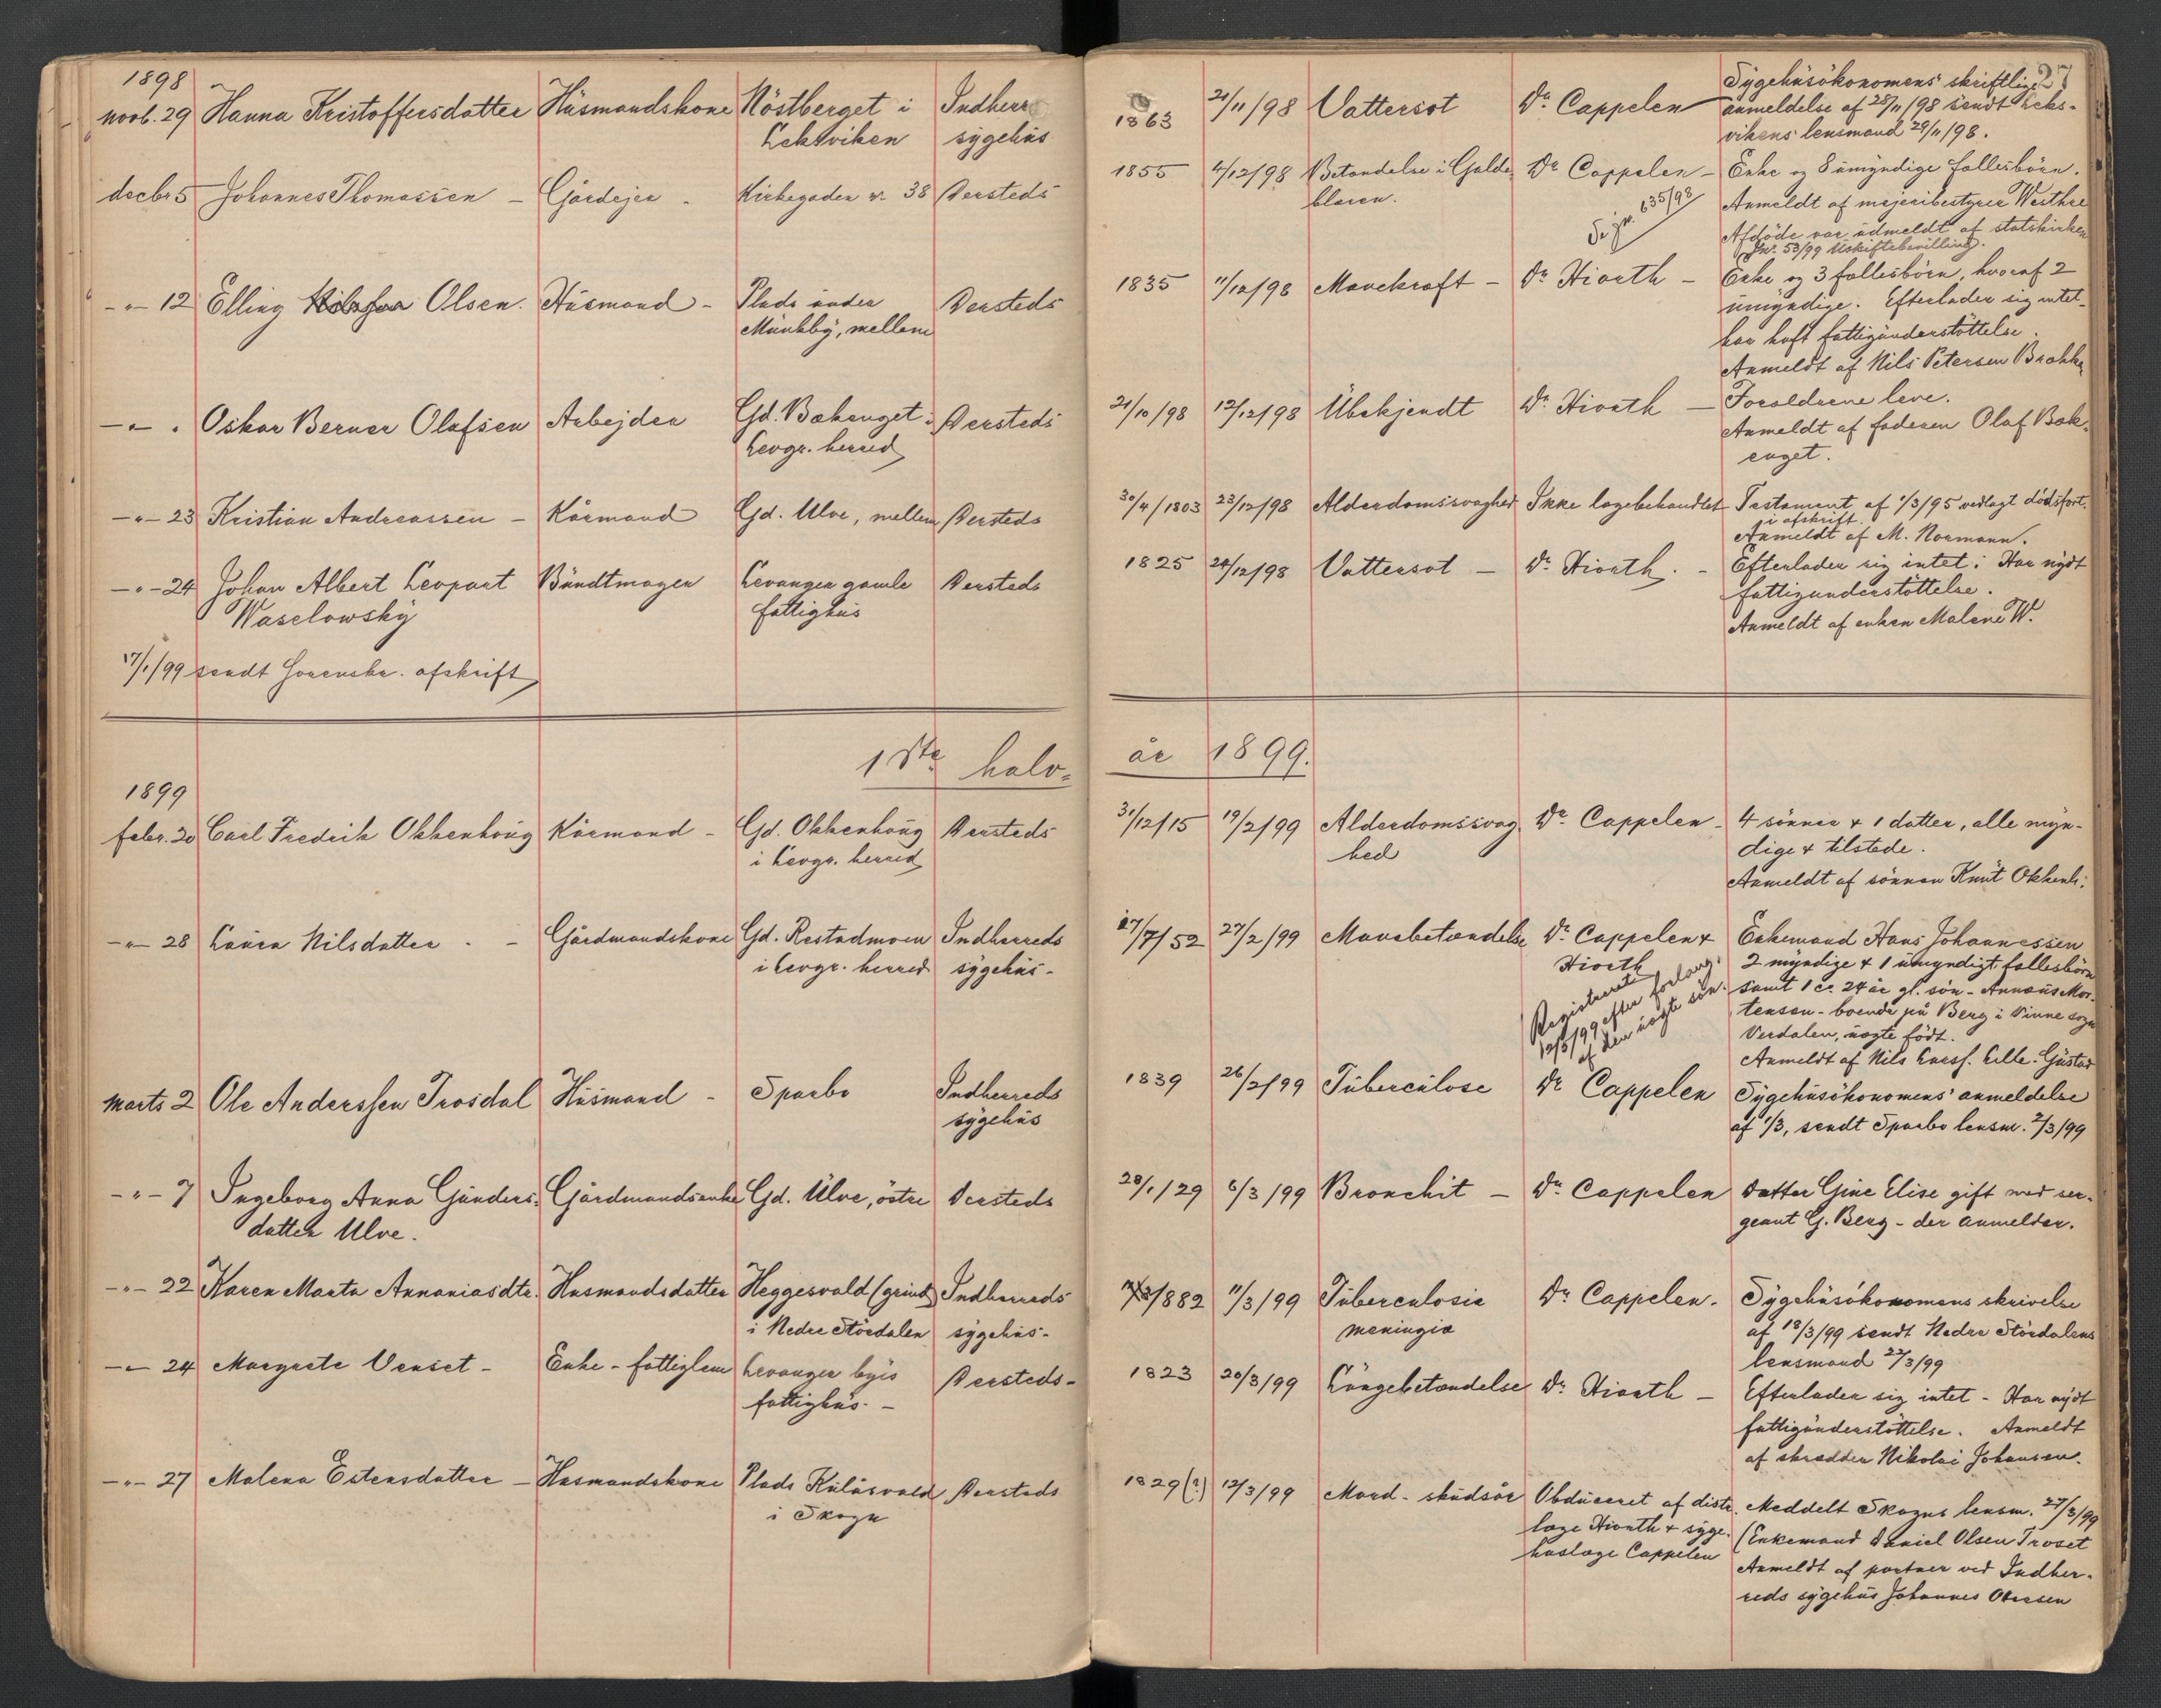 27
1898
novb. 29 Hanna Kristoffersdatter Husmandskone Röstberget i Indherr 1863 21/11/98 Vattersot Dr. Cappelen Sygehusökonomens skriftlige
Leksviken sygehus anmeldelse af 28/11/98 sendt Leks-
vikens lensmand 29/11/98.
decbr 5 Johannes Thomassen - Gårdejer - Kirkegaden nr. 38 Dersteds 1855 4/12/98 Betændelse i Galde Dr Cappelen - Enke og 8 umyndige fællesbörn.
blæren. Se jr. 635/98 Anmeldt af mejeribestyrer Westhre
Afdöde var udmeldt af statskirken
Jnr. 53/99 Uskiftebevilling.
-"- 12 Elling Olsen. Husmand - Plads under Dersteds 1835 11/12/98 Mavekræft - Dr Hiorth - Enke og 3 fællesbörn, hvoraf 2
Munkby, mellem umyndige. Efterlader sig intet-
har haft fattigunderstöttelse.
Anmeldt af Nils Petersen Brakke
-"- . Oskar Berner Olafsen Arbejder Gd. Bakenget i Dersteds 21/10/98 12/12/98 Ubekjendt Dr Hiorth - Forældrene leve.
Levgr. herred Anmeldt af faderen Olaf Bak-
enget.
-"- 23 Kristian Andreassen - Kårmand Gd. Ulve, mellem Dersteds 30/4/1803 23/12/98 Alderdomssvaghed Ikke lægebehandlet Testament af 1/3/95 vedlagt dödsfort.
i afskrift.
Anmeldt af M. Normann.
-"- 24 Johan Albert Leopart Bundtmager Levanger gamle Dersteds 1825 24/12/98 Vattersot - Dr. Hiorth. - Efterlader sig intet: Har nydt
Waselowsky fattighus fattigunderstöttelse.
Anmeldt af enken Malene W.
17/1/99 sendt Sorenskr. afskrift
1ste halv- år 1899.
1899
febr. 20 Carl Fredrik Okkenhoug Kårmand - Gd. Okkenhoug Dersteds 31/12/15 19/2/99 Alderdomssvag Dr. Cappelen - 4 sönner & 1 datter, alle myn-
i Levgr. herred hed dige & tilstede.
Anmeldt af sönnen Knut Okkenh:
-"- 28 Laura Nilsdatter - - Gårdmandskone Gd. Restadmoen Indherreds 27/7/52 27/2/99 Mavebetændelse Dr. Cappelen & Enkemand Hans Johannessen
i Levgr. herred sygehus- Hiorth 2 myndige & 1 umyndigt fællesbörn
Registreret samt 1 cr. 24 år gl. sön - Annæus Mor-
10/3/99 efter forlang. tensen - boende på Berg i Vinne sogn
af den uægte sön. Verdalen, uægte födt.
Anmeldt af Nils Gustad
marts 2 Ole Anderssen Trosdal Husmand - Sparbo Indherreds 1839 26/2/99 Tuberculose Dr Cappelen Sygehusökonomens anmeldelse
sygehus af 1/3, sendt Sparbo lensm. 2/3/99
-"- 7 Ingeborg Anna Gunders- Gårdmandsenke Gd. Ulve, östre Dersteds 28/1/29 6/3/99 Bronchit - Dr. Cappelen Datter Gine Elise gift med ser-
datter Ulve. geant G. Berg - der anmelder.
-"- 22 Karen Marta Annaniasdtr. Husmandsdatter Heggesvald (grind) Indherreds 7/3/882 11/3/99 Tuberculosis Dr Cappelen. Sygehusökonomens skrivelse
i Nedre Stördalen sygehus- meningia af 18/3/99 sendt Nedre Stördalens
lensmand 22/3/99
-"- 24 Margrete Venset - Enke - fattiglem Levanger byes Dersteds- 1823 20/3/99 Lungebetændelse Dr. Hiorth - Efterlader sig intet - Har nydt
fattighus. - fattigunderstöttelse. Anmeldt
af skrædder Nikolai Johansen.
-"- 27 Malena Estensdatter - Husmandskone Plads Kulåsvald Dersteds 1829 (?) 12/3/99 Mord - skudsår Obduceret af distr. Meddelt Skogns lensm. 27/3/99
i Skogn læge Hiorth & syge- (Enkemand Daniel Olsen Troset
huslæge Cappelen Anmeldt af portner ved Indher-
reds sygehus Johannes Olsen